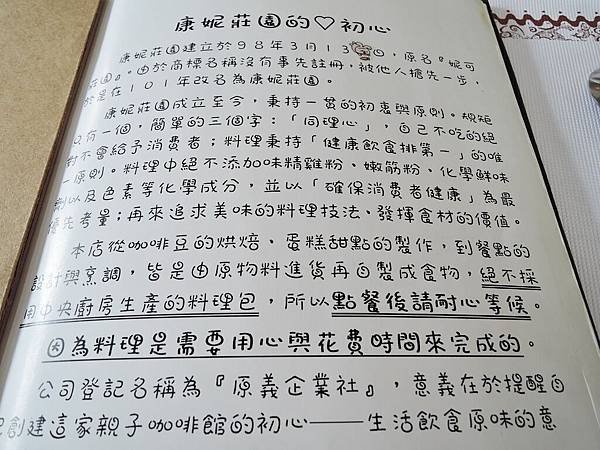 康妮莊園的♡初心
康妮莊園建立於98年3月13日，原名『妮可
莊園』。由於商標名稱沒有事先註冊，被他人搶先一步，
於是在101年改名為康妮莊園。
康妮莊園成立至今，秉持一貫的初衷與原則。規矩
只有一個，簡單的三個字：「同理心」，自己不吃的絕
對不會給予消費者；料理秉持「健康飲食排第一」的唯
一原則。料理中絕不添加味精雞粉、嫩筋粉、化學鮮味
劑以及色素等化學成分，並以「確保消費者健康」為最
優先考量；再來追求美味的料理技法、發揮食材的價值。
本店從咖啡豆的烘焙、蛋糕甜點的製作，到餐點的
設計與烹調，皆是由原物料進貨再自製成食物，絕不採
用中央廚房生產的料理包，所以點餐後請耐心等候。
因為料理是需要用心與花費時間來完成的。
公司登記名稱為『原義企業社』，意義在於提醒自
己創建這家親子咖啡館的初心——生活飲食原味的意